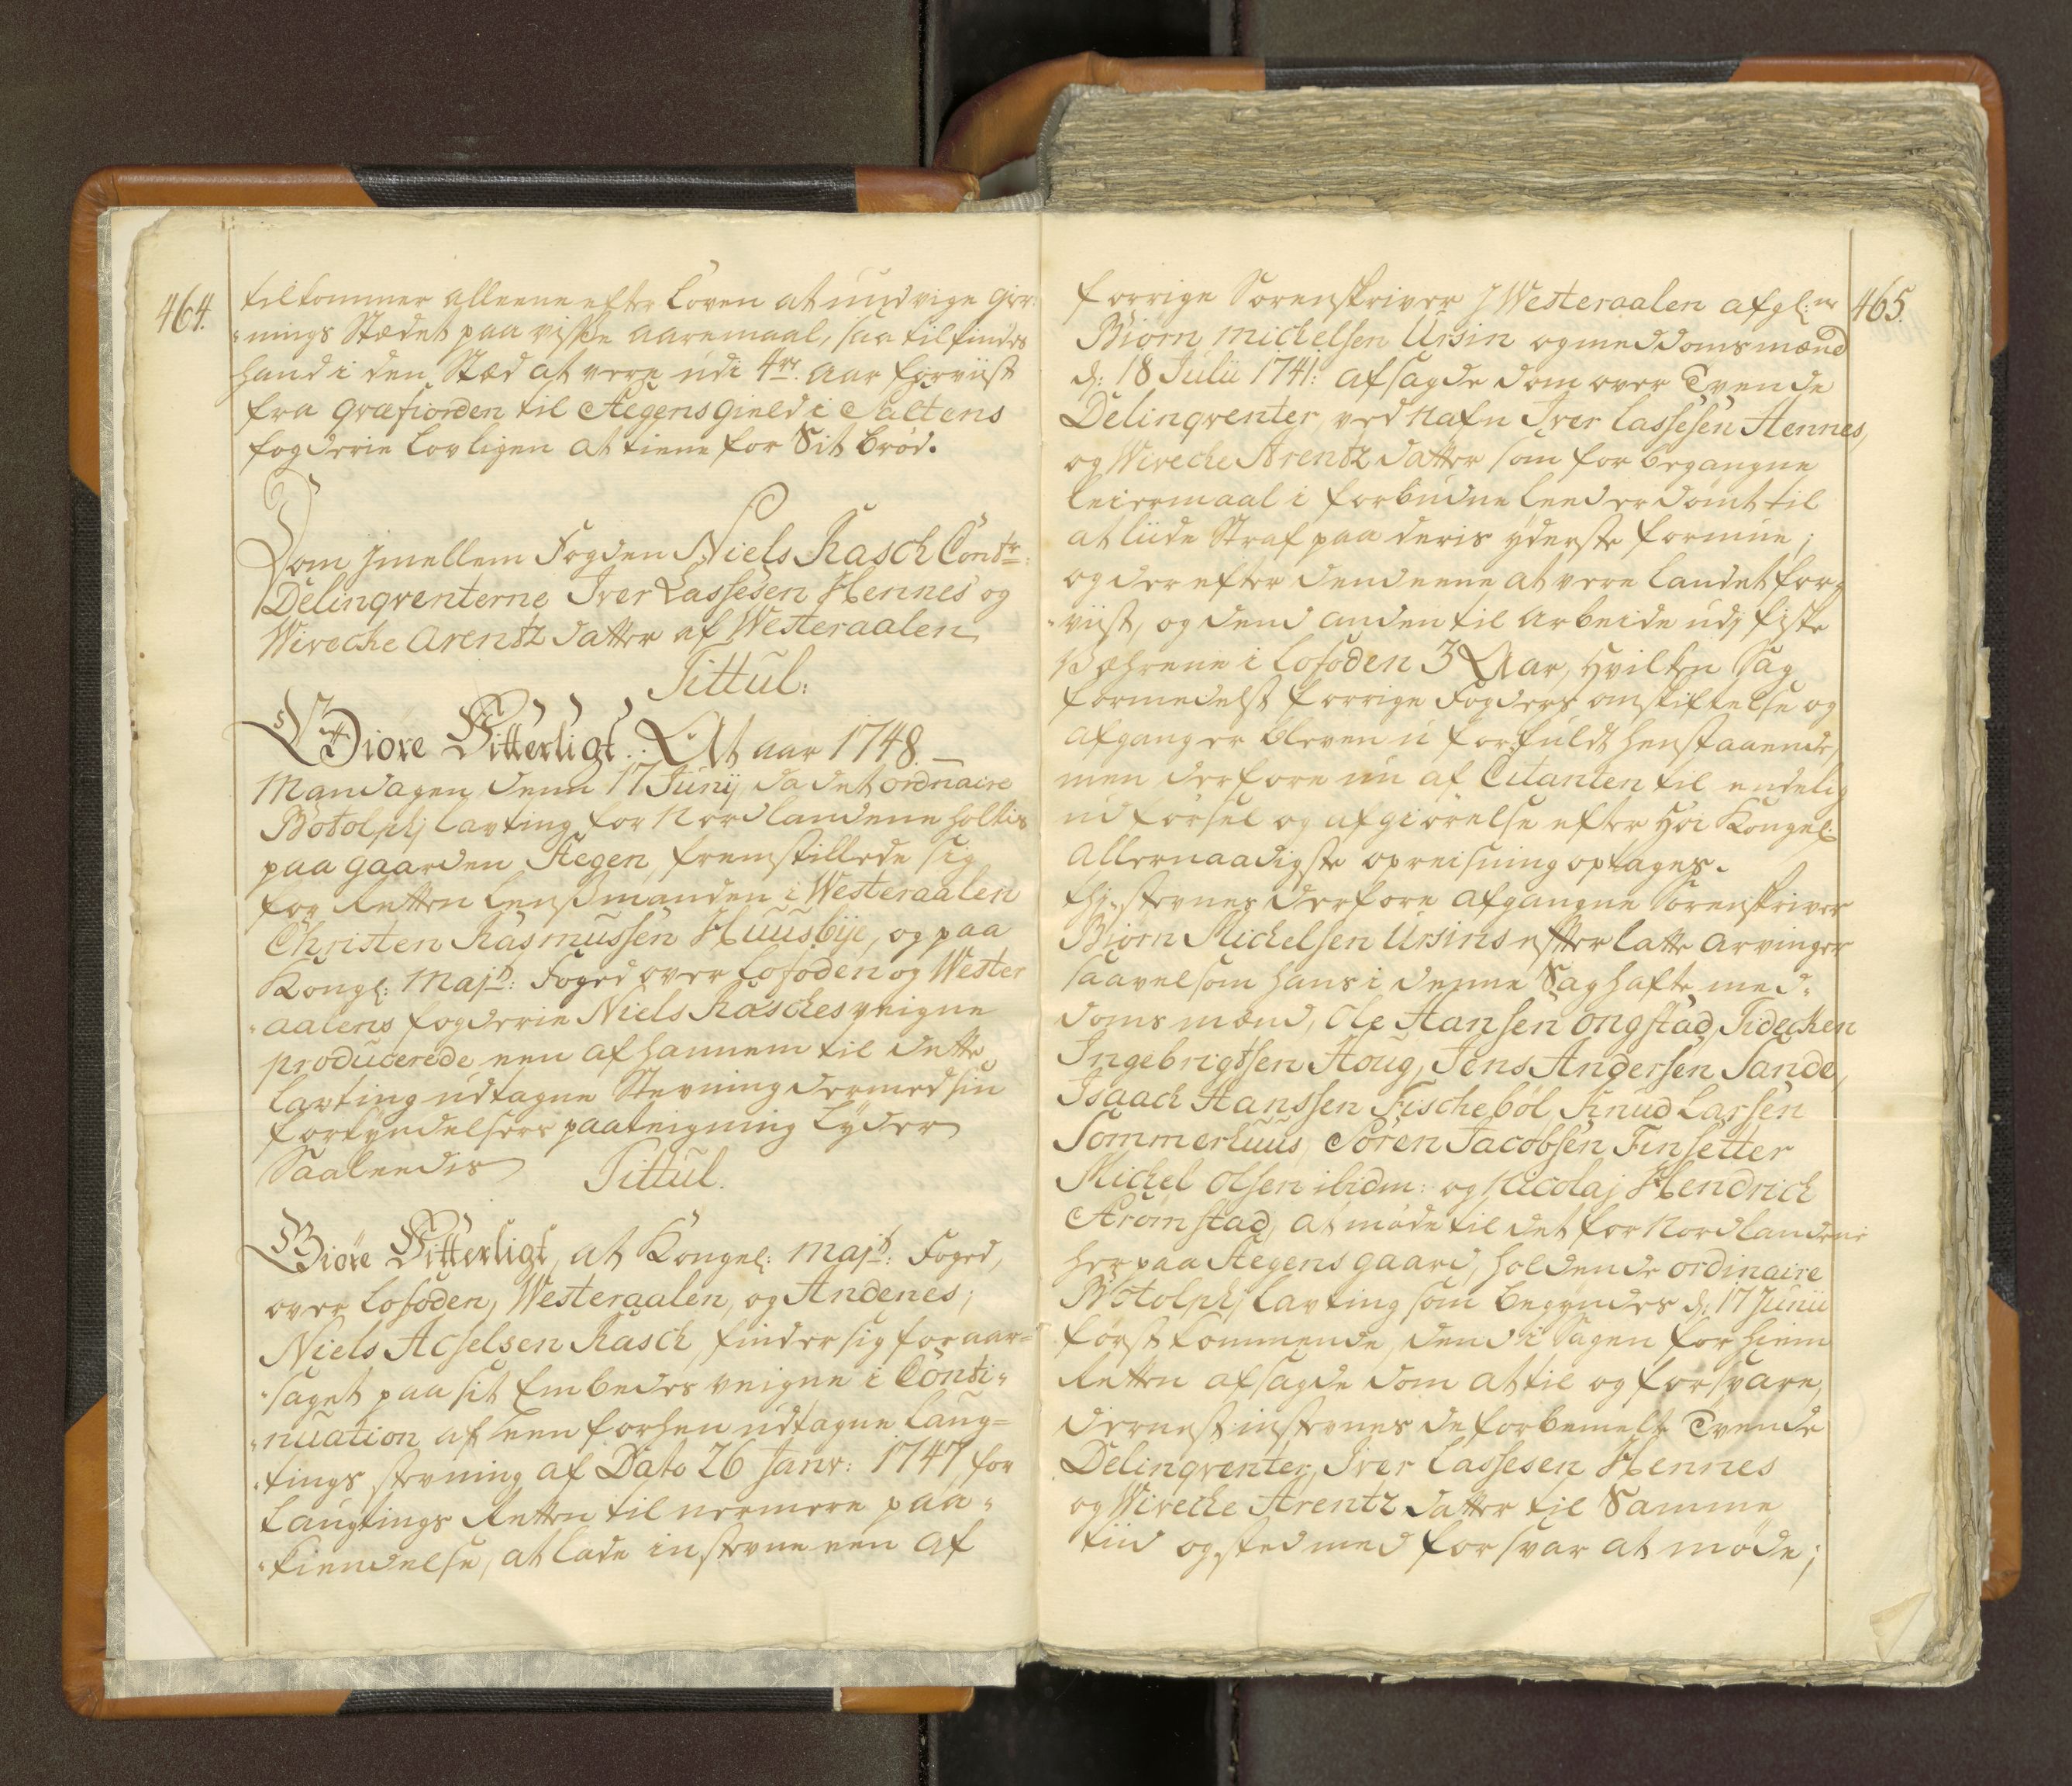 464.
tilkommer alleene efter Loven at undvige gier-
nings Stædet paa visse aaremaal, saa tilfindes
hand i den Stæd at vere udi 4re. aar forviist
fra Qvæfiorden til Stegens Gield i Saltens
fogderie lovligen at tiene for Sit brød.
Dom Jmellem Fogden Niels Rasch Contr:
Delinqventerne Iver Lassesen Hennes og
Wireche Arentz datter af Westeraalen
Tittul:
Giøre Vitterligt: At aar 1748.
Mandagen denn 17 Junij da det ordnaire
Botolphj lavting for Nordlandene holtes
paa gaarden Stegen, fremstillede sig
for Retten Lensmanden i Westeraalen
Christen Rasmussen Huusbije, og paa
Kongl: Majts: Foged over Lofoden og Wester
aalens fogderie Niels Rasches veigne
producerede een af hannem til dette
Lavting udtagne Stevning dermed sin
forkyndelsers paateigning lyder
Saaleedis Tittul.
Giøre Vitterligt, at Kongel: Majts: Foged,
over Lofoden, Westeraalen, og Andenes;
Niels Acselsen Rasch, finder sig foraar-
saget paa sit Embedes veigne i Conti-
nuation af een forhen udtagne Laug-
tings stevning af Dato 26 Janv: 1747, for
Laugtings Retten til nermere paa-
kiendelse, at lade instevne een af
465.
forrige Sorenskriver J Westeraalen afgl:ne
Biørn Michelsen Ursin og meddomsmænd
d: 18 Julii 1741: afsagde dom over Tvende
Delinqventer, ved Nafn Iver Lassesen Hennes,
og Wireche Arentz datter som for begangne
leiermaal i forbudne leed er dømt til
at liide Straf paa deris yderste formue;
og der efter den eene at vere landet for-
viist, og dend anden til arbeide udj fiske
Wæhrene i Lofoden 3 Aar, hvilken Sag
formedelst forrige Fogders omskiftelse og
afgang er bleven u forfuldt henstaaende,
men derfore nu af Citanten til endelig
udførsel og afgiørelse efter Høi Kongel:
allernaadigste opreisning optages.
Thi stevnes derfore afgangne Sorenskriver
Biørn Michelsen Ursins efterlatte arvinger
saavelsom hans i denne Sag hafte med-
doms mænd, Ole Hansen Ongstad, Tidechen
Ingebrigtsen Houg, Jens Andersen Sande,
Isaach Hanssen Fischebøl Knud Larsen
Sommerhuus, Søren Jacobsen Finsetter
Michel Olsen ibidm: og Nicolaj Hendrich
Strømstad, at møde til det for Nordlandene
her paa Stegens gaard, holdende ordinaire
Botolphj Lavting som begyndes d: 17 Junii
førstkommende, dend i Sagen for hiem
Retten afsagde dom at til og forsvare,
dernest instevnes de forbemelte Tvende
Delinqventer, Iver Lassesen Hennes
og Wireche Arentz datter til Samme
tiid og sted med forsvar at møde;